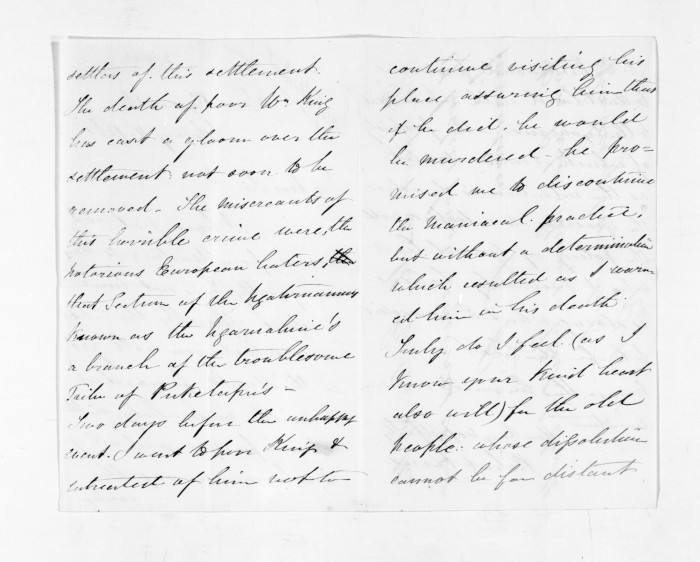 settlers of this settlement.
The death of poor Wm King
has cast a gloom over the
settlement not soon to be
removed - The miscreants of
this horrible crime were, the
notorious European haters,
that Section of the
known as the Ngamahine's
a branch of the troublesome
Tribe of Puketapu's -
Two days before the unhappy
event. I went to poor King &
entreated of him not to
continue visiting his
place assuring him thus
if he did, he would
be murdered - he pro-
mised me to discontinue
the maniacal practice,
but without a determination
which resulted as I warn
ed him in his death.
Truly do I feel (as I
know your kind heart
also will) for the old
people. whose dissolution
cannot be far distant